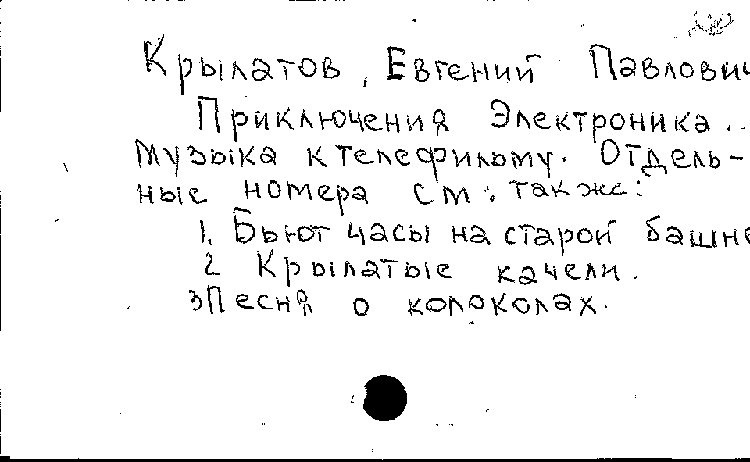 Крылатов, Евгений Павлович
Приключения Электроника..
Музыка к телефильму. Отдель-
ные номера см. также:
1. Бьют часы на старой башне
2 Крылатые качели.
3 Песня о колоколах.